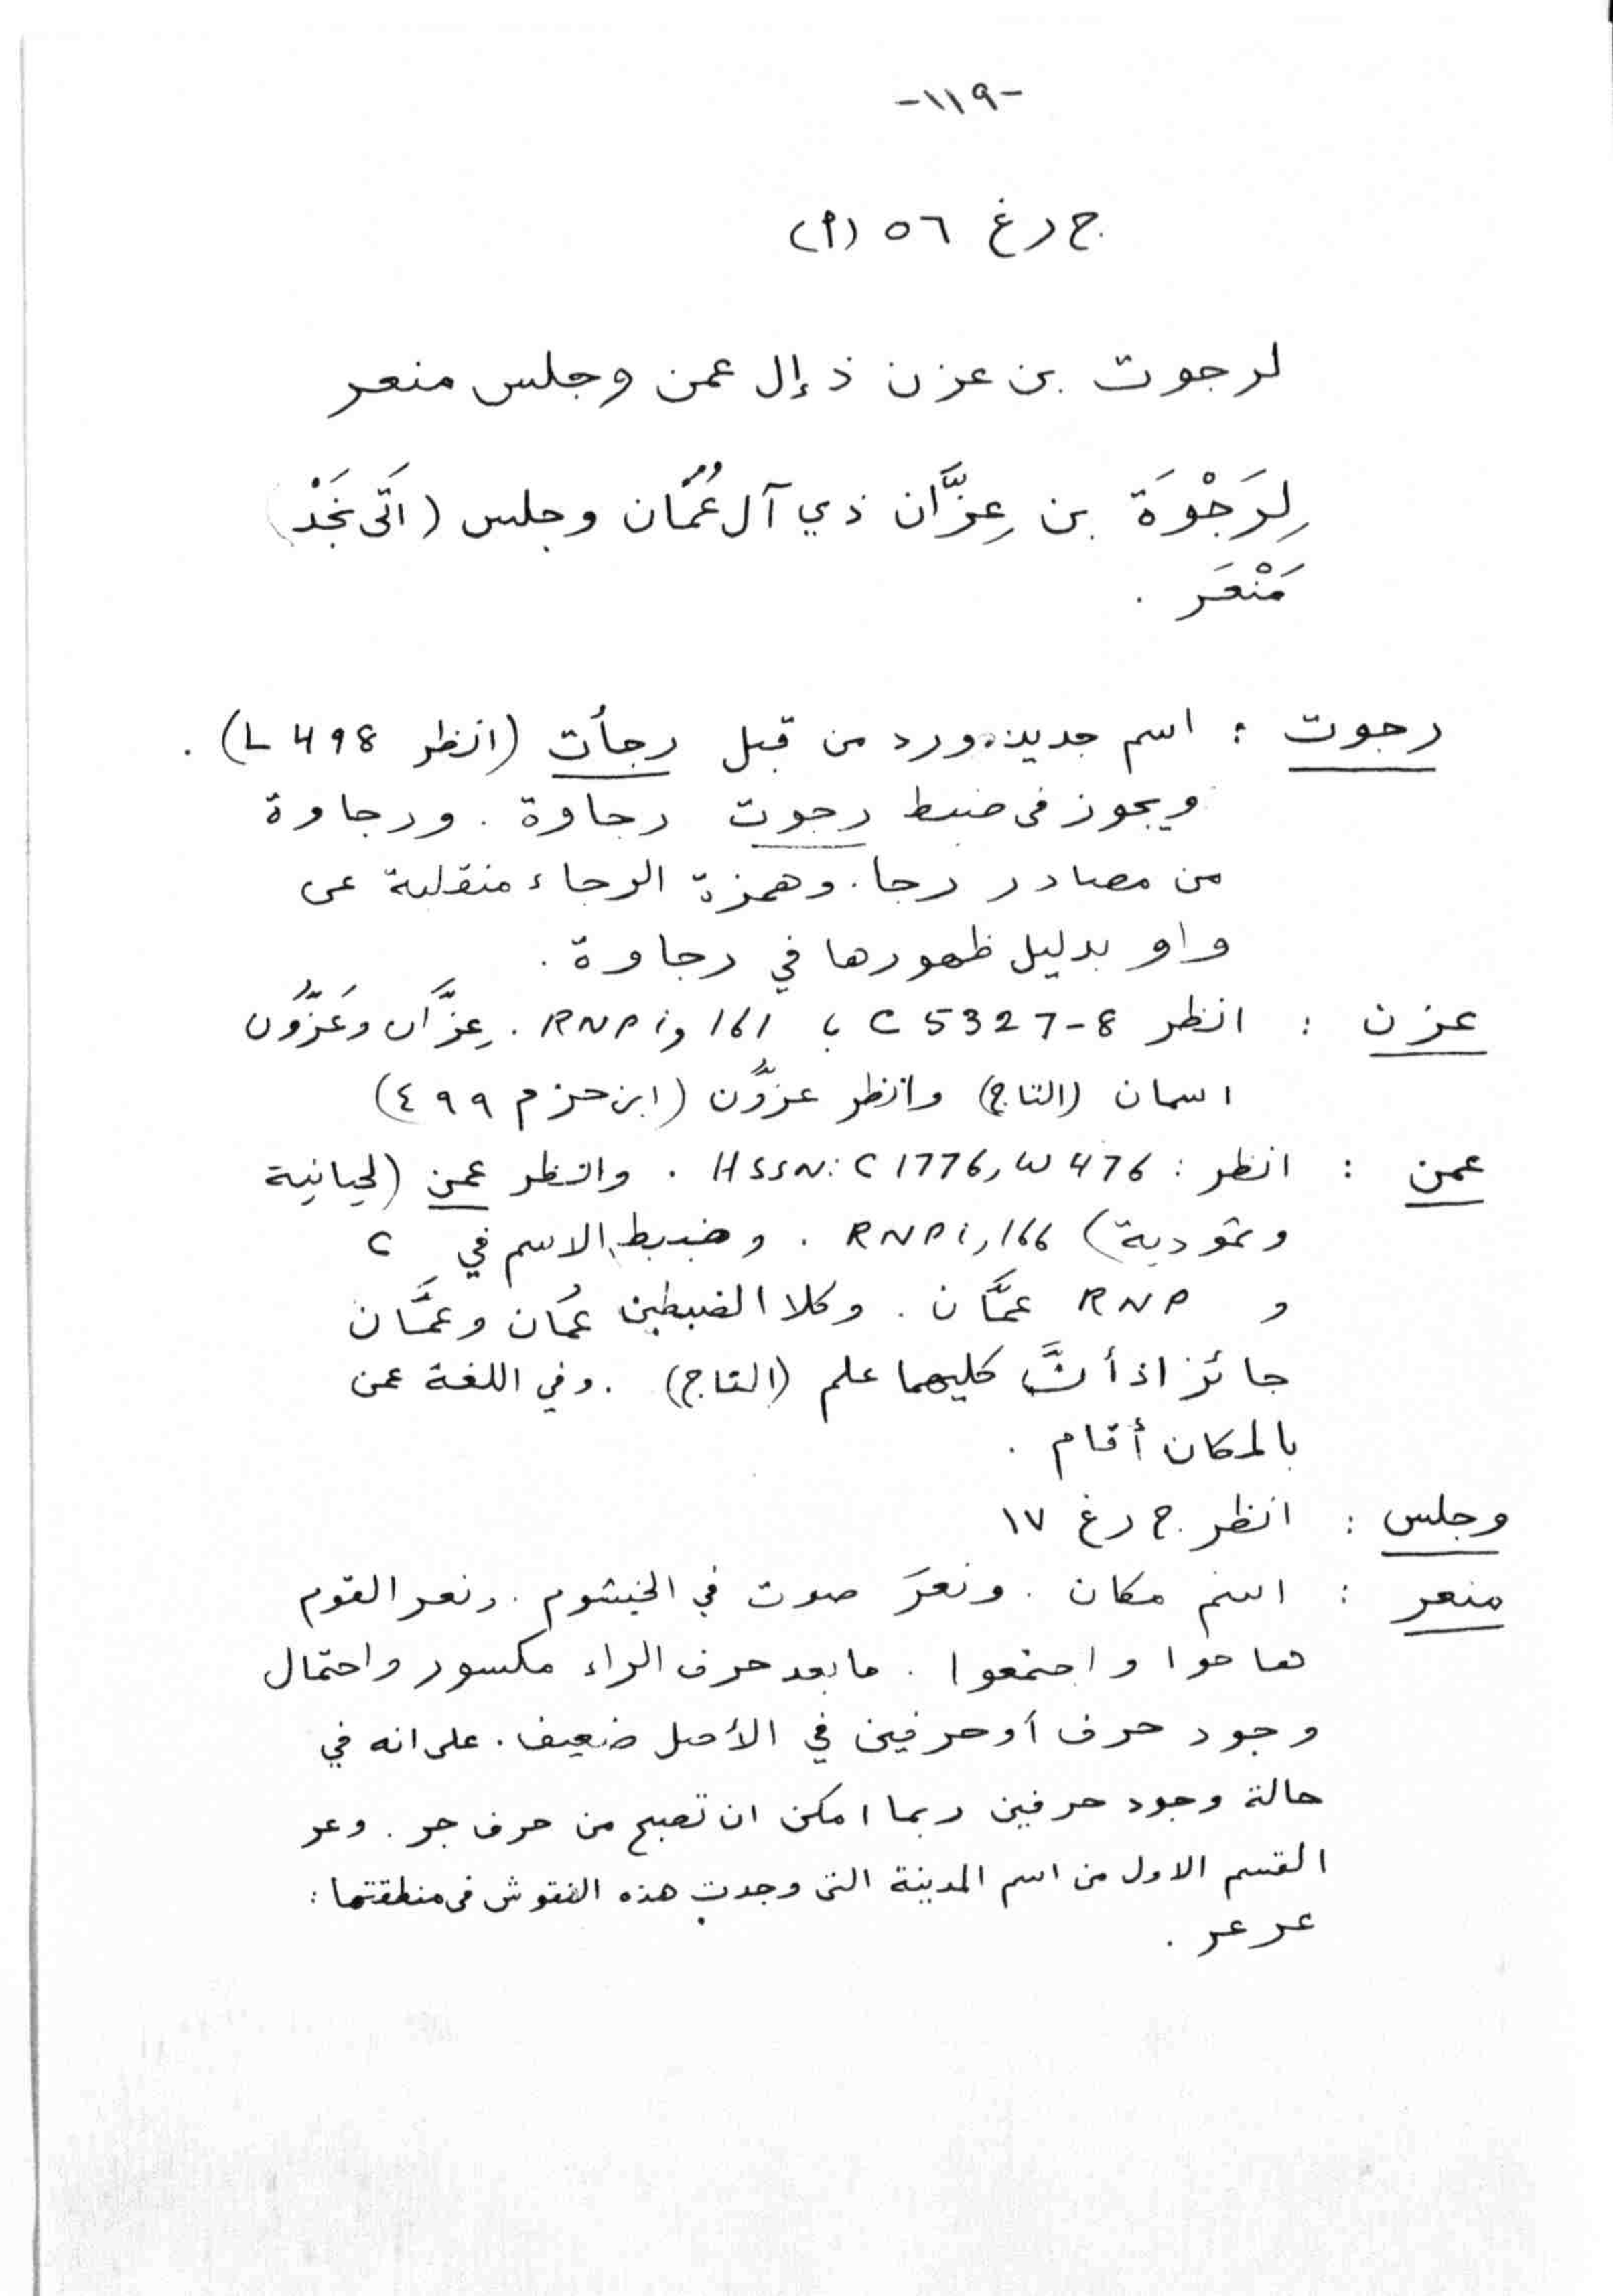 -١١٩-
ج رغ ٥٦ (أ)
لرجوت بن عزن ذ إل عمن وجلس منعر
لِرَجْوَة بن عِزَّان ذي آل عُمَان وجلس (اَتَى نَجَدْ)
مَنْعَر .
رجوت : اسم جديد. ورد من قبل رجأت (انظر L 498) .
ويجوز في ضبط رجوت رجاوة . ورجاوة
من مصادر رجا . وهمزة الرجاء منقلبة عن
واو بدليل ظهورها في رجاوة .
عزن : انظر C 5327-8 ؛ RNP i و 161 . عِزَّان وعَزُّون
اسمان (التاج) وانظر عزُّون (ابن حزم ٤٩٩)
عمن : انظر : HSSN: C 1776, W 476 . وانظر عمن (لحيانية
وثمودية) RNP i, 166 . وضبط الاسم في C
و RNP عمَّان . وكلا الضبطين عُمان وعمَّان
جائز اذ أنَّ كليهما علم (التاج) . وفي اللغة عمن
بالمكان أقام .
وجلس : انظر ج رغ ١٧
منعر : اسم مكان . ونعَرَ صوت في الخيشوم . ونعر القوم
هاجوا واجتمعوا . ما بعد حرف الراء مكسور واحتمال
وجود حرف أو حرفين في الأصل ضعيف . على انه في
حالة وجود حرفين ربما امكن ان تصبح من حرف جر . وعر
القسم الاول من اسم المدينة التي وجدت هذه النقوش في منطقتها :
عرعر .